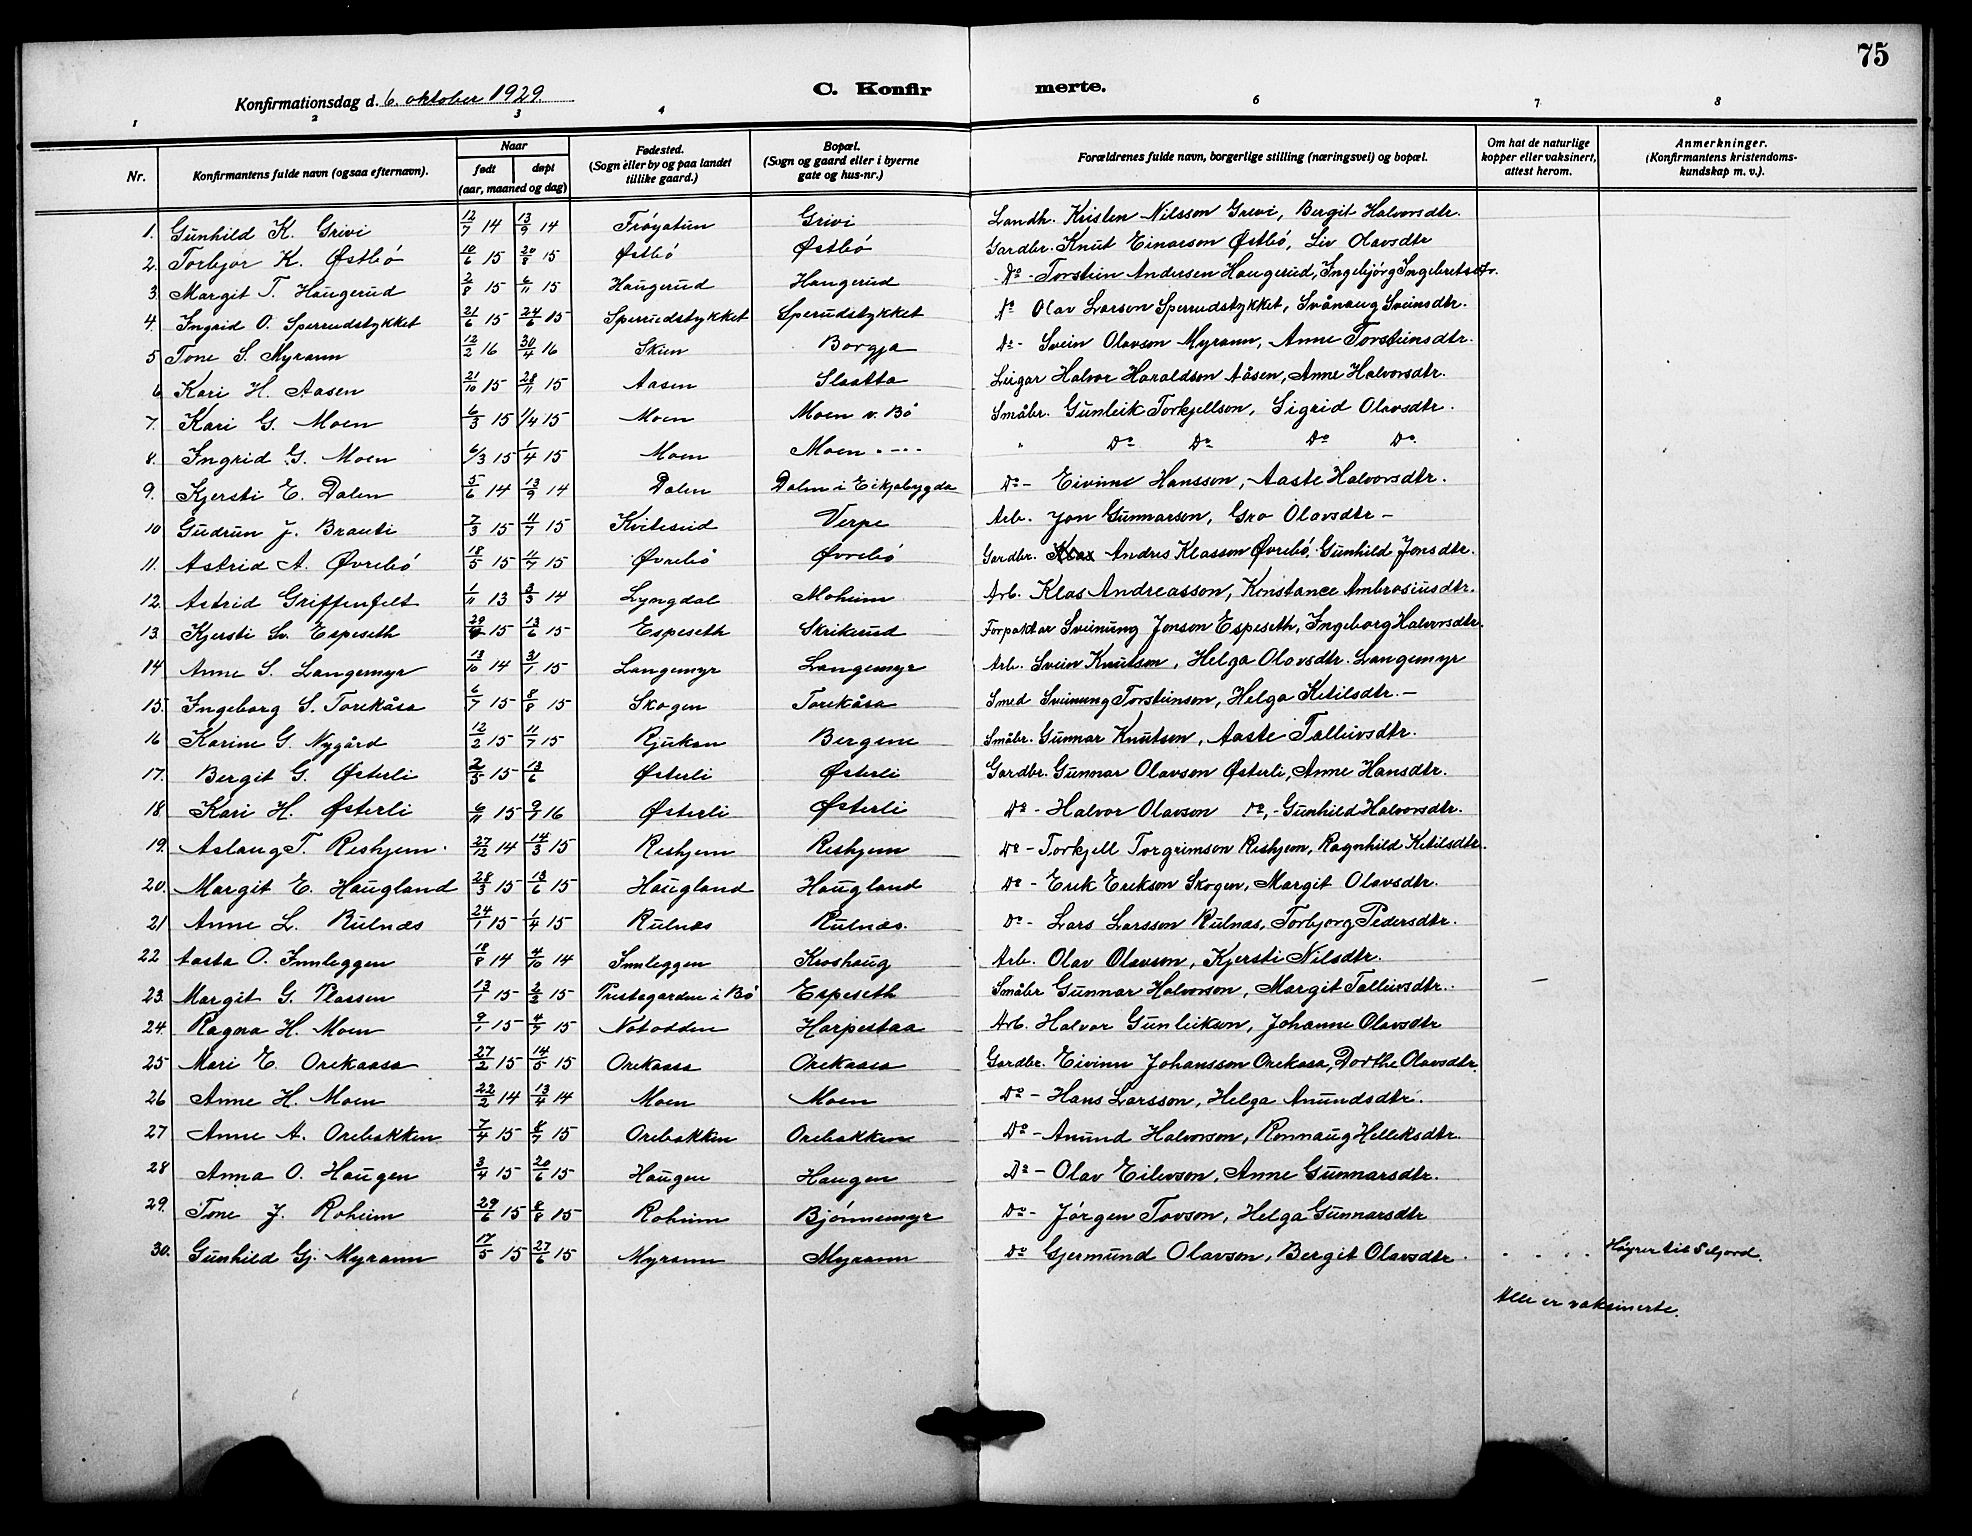 75
Konfirmationsdag d. 6. oktober 1929. C. Konfirmerte.
1 2 3 4 6 7 8
Nr. Konfirmantens fulde navn (ogsaa efternavn). Naar født døpt (aar, maaned og dag) Fødested. (Sogn eller by og paa landet tillike gaard.) Bopæl. (Sogn og gaard eller i byerne gate og hus-nr.) Forældrenes fulde navn, borgerlige stilling (næringsvei) og bopæl. Om hat de naturlige kopper eller vaksinert, attest herom. Anmerkninger. (Konfirmantens kristendoms-kundskap m. v.).
1. Gunhild K. Grivi 12/7 14 13/9 14 Frøyatun Grivi Landh. Kristen Nilsson Grevi, Bergit Halvorsdtr.
2. Torbjør K. Østbö 10/6 15 20/8 15 Østbö Østbö Gardbr. Knut Einarson Østbö, Liv Olavsdtr
3. Margit T. Haugerud 2/8 15 6/11 15 Haugerud Haugerud Do - Torstein Andresen Haugerud, Ingebjörg Ingebretsdtr.
4. Ingrid O. Sperrudstykket 21/6 15 24/6 15 Sperrudstykket Sperudstykket Do Olav Larson Sperrudstykket, Svånaug Sveinsdtr.
5 Tone S. Myrann 12/2 16 30/4 16 Skien Borgja Do - Svein Olavson Myrann, Anne Torsteinsdtr.
6 Kari H. Aasen 21/10 15 28/11 15 Aasen Slaatta Leigar Halvor Haraldson Aåsen, Anne Halvorsdtr.
7. Kari G. Moen 6/3 15 1/4 15 Moen Moen v. Bö Småbr. Gunleik Torkjellson, Sigrid Olavsdtr.
8. Ingrid G. Moen 6/3 15 1/4 15 Moen Moen - - - " Do Do Do Do
9. Kjersti E. Dalen 5/6 14 13/9 14 Dalen Dalen i Eikjabygda Do - Eivind Hansson, Aaste Halvorsdtr.
10 Gudrun J. Brauti 7/3 15 11/7 15 Kviteseid Verpe Arb. Jon Gunnarson, Gro Olavsdtr -
11. Astrid A. Øvrebö 18/5 15 11/7 15 Øvrebö Øvrebö Gardbr. Klas Andres Klasson Øvrebö, Gunhild Jonsdtr.
12. Astrid Griffenfelt 1/11 13 3/3 14 Lyngdal Moheim Arb. Klas Andreasson, Konstance Ambrosiusdtr.
13. Kjersti Sv. Espeseth 15 13/6 15 Espeseth Skrikerud Forpaktar Sveinung Jonson Espeseth, Ingeborg Halvorsdtr.
14 Anne S. Langemyr 13/10 14 31/1 15 Langemyr Langemyr Arb. Svein Knutson, Helga Olavsdtr. Langemyr
15. Ingeborg S. Torekåsa 6/7 15 8/8 15 Skogen Torekåsa Smed Sveinung Torsteinson, Helga Ketilsdtr. -
16 Karine G. Nygård 12/2 15 11/7 15 Rjukan Bergene Småbr. Gunnar Knutson, Aaste Talleivsdtr.
17. Bergit G. Østerli 2/5 15 13/6 Østerli Østerli Gardbr. Gunnar Olavson Østerli, Anne Hansdtr.
18 Kari H. Østerli 6/11 15 9/7 16 Østerli Østerli Do - Halvor Olavson Do, - Gunhild Halvorsdtr.
19. Aslaug T. Reshjem 27/12 14 14/3 15 Reshjem Reshjem Do - Torkjell Torgrimson Reshjem, Ragnhild Ketilsdtr.
20. Margit E. Haugland 28/3 15 13/6 15 Haugland Haugland Do - Erik Erikson Skogen, Margit Olavsdtr.
21 Anne L. Rulnæs 24/1 15 1/4 15 Rulnæs Rulnæs. Do - Lars Larsson Rulnæs, Torbjorg Pedersdtr.
22 Aasta O. Innleggen 18/8 14 4/10 14 Innleggen Kroshaug Arb. Olav Olavson, Kjersti Nilsdtr.
23. Margit G. Plassen 13/1 15 2/2 15 Prestegarden i Bö Espeseth Småbr Gunnar Halvorson, Margit Talleivsdtr.
24. Ragna H. Moen 9/1 15 4/7 15 Notodden Harpestaa Arb. Halvor Gunleikson, Johanne Olavsdtr
25 Mari E. Orekaasa 27/2 15 14/5 15 Orekaasa Orekaasa Gardbr. Eivinn Johansson Orekasa, Dorthe Olavsdtr.
26 Anne H. Moen 22/2 14 13/4 14 Moen Moen Do - Hans Larsson, Helga Anundsdtr.
27 Anne A. Orebakken 7/4 15 8/7 15 Orebakken Orebakken Do - Anund Halvorson, Rønnaug Helleksdtr.
28 Anna O. Haugen 3/4 15 20/6 15 Haugen Haugen Do - Olav Eilevson, Anne Gunnarsdtr.
29. Tone J. Roheim 29/6 15 8/8 15 Roheim Bjønnemyr Do - Jörgen Tovson, Helga Gunnarsdtr
30. Gunhild Gj. Myrann 17/5 15 27/6 15 Myrann Myrann Do Gjermund Olavson, Bergit Olavsdtr . . . . . Høyrer til Seljord.
Alle er vaksinerte.